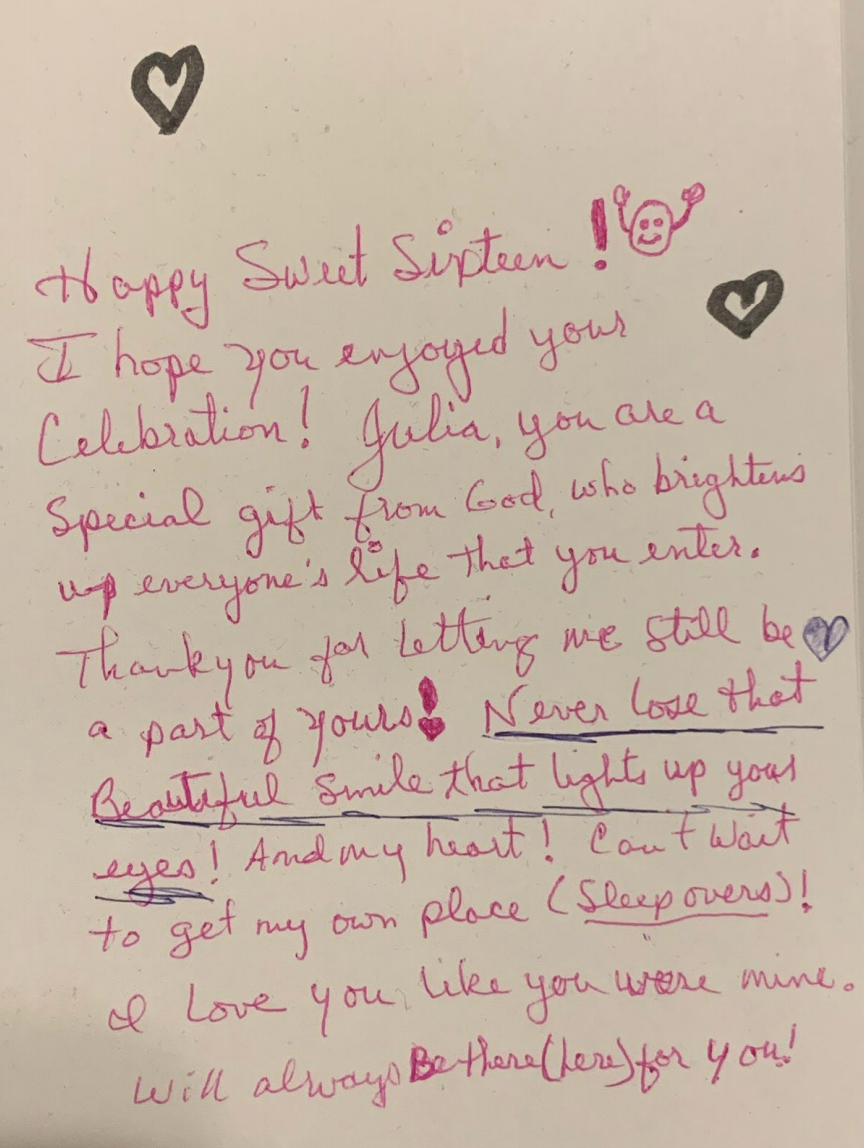 Happy Sweet Sixteen!
I hope you enjoyed your
Celebration! Julia, you are a
Special gift from God, who brightens
up everyone's life that you enter.
Thank you for letting me still be
a part of yours! Never lose that
Beautiful smile that lights up your
eyes! And my heart! Can't Wait
to get my own place (Sleepovers)!
I Love you like you were mine.
Will always Be there (here) for you!